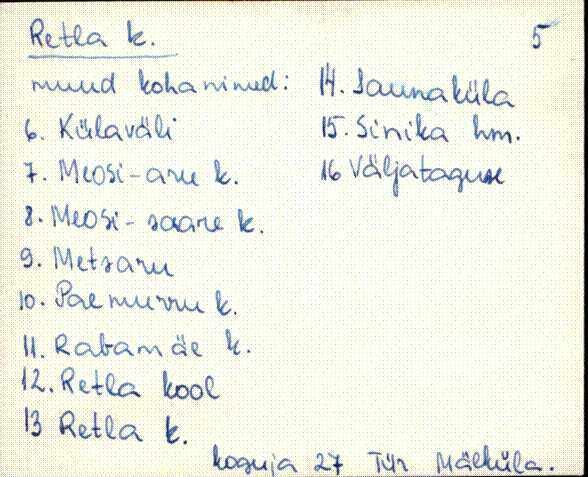 Retla k.
5
muud kohanimed:
6. Külaväli
7. Meosi-aru k.
8. Meosi-saare k.
9. Metsaru
10. Paemurru k.
11. Rabamäe k.
12. Retla kool
13 Retla k.
14. Saunaküla
15. Sinika hm.
16 Väljataguse
koguja 27 Tür Mäeküla.